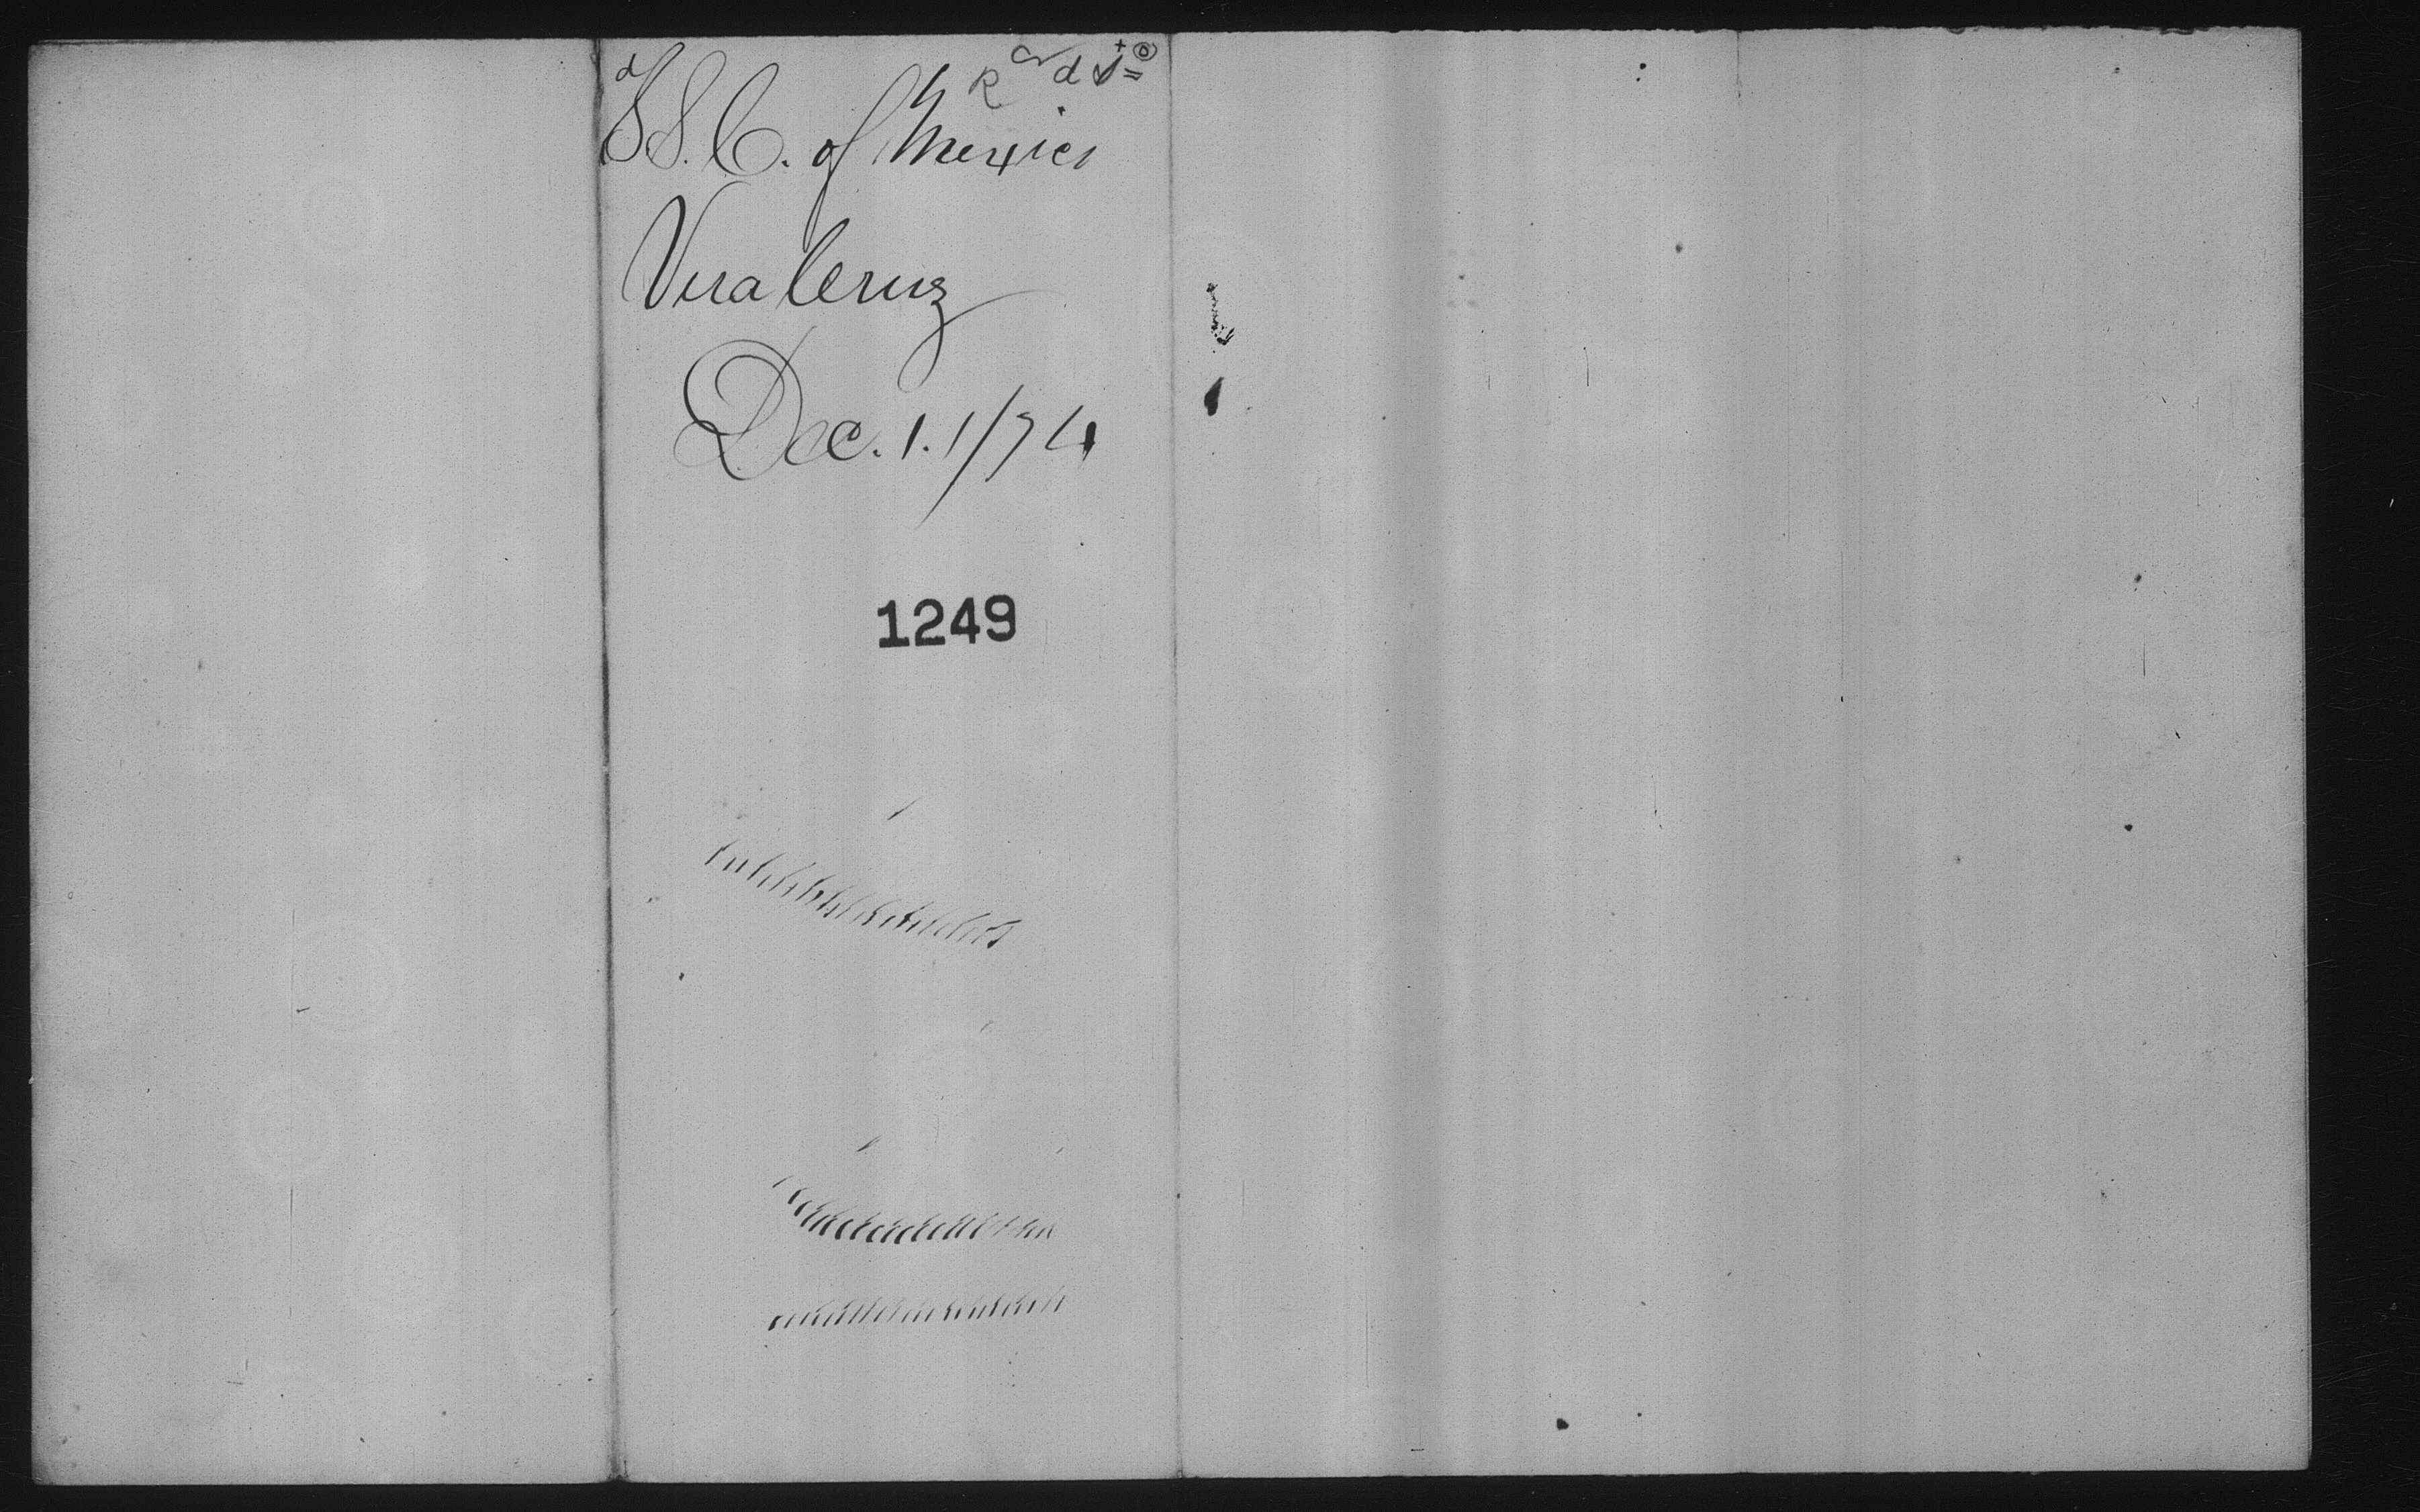 S.S.C. of Mexico
Vera Cruz
Dec. 1.1/74
1249